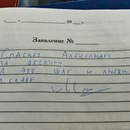 " " 20 г.
Заявление №
Спасибо Александру
за встречу
за это шаг к любви
и славе